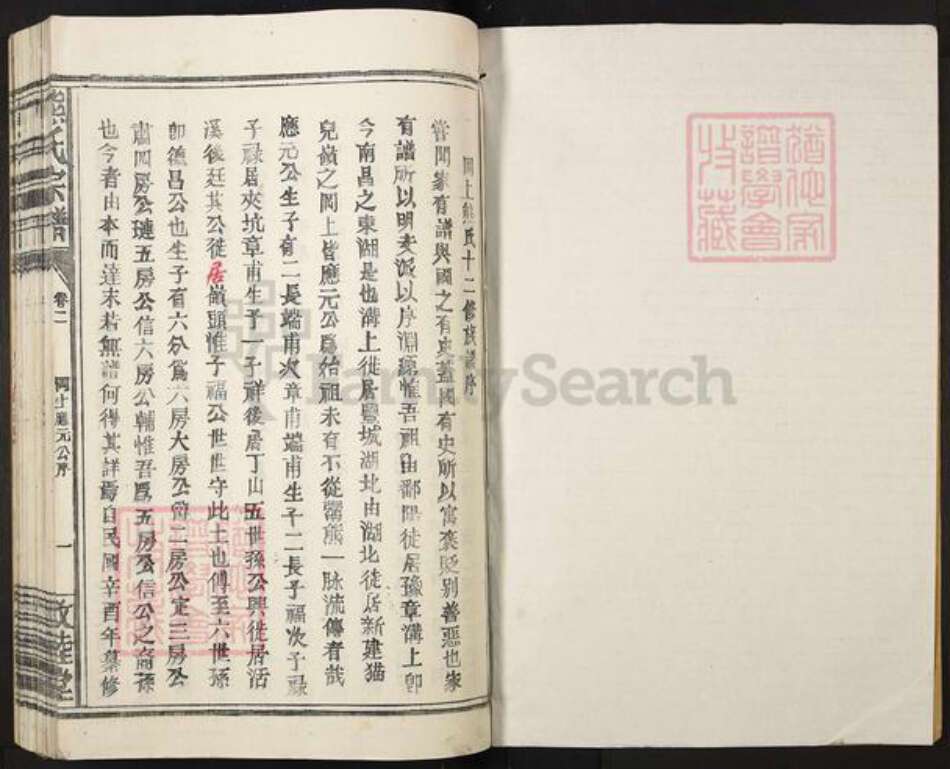 閣上熊氏十二修族譜序
嘗聞家有譜與國之有史蓋國有史所以寓褒貶別善惡也家
有譜所以明支派以序淵源惟吾祖由鄱陽徒居豫章溝上卽
今南昌之東湖是也溝上徙居豐城湖北由湖北徒居新建猫
兒嶺之閣上皆應元公爲始祖未有不從鬻熊一脉流傳者哉
應元公生子有二長端甫次章甫端甫生子二長子福次子祿
子祿居夾坑章甫生子一子祥後居丁山五世孫公興徙居活
溪後廷其公徙居嶺頭惟子福公世世守此土也傳至六世孫
卽德昌公也生子有六分爲六房大房公 二房公定三房公
肅四房公璉五房公信六房公輔惟吾爲五房公信公之裔孫
也今者由本而達末若無譜何得其詳焉自民國辛酉年纂修
熊氏宗譜
卷二
閣上應元公序
一
敦睦堂
猶他家
譜學會
收藏
FamilySearch